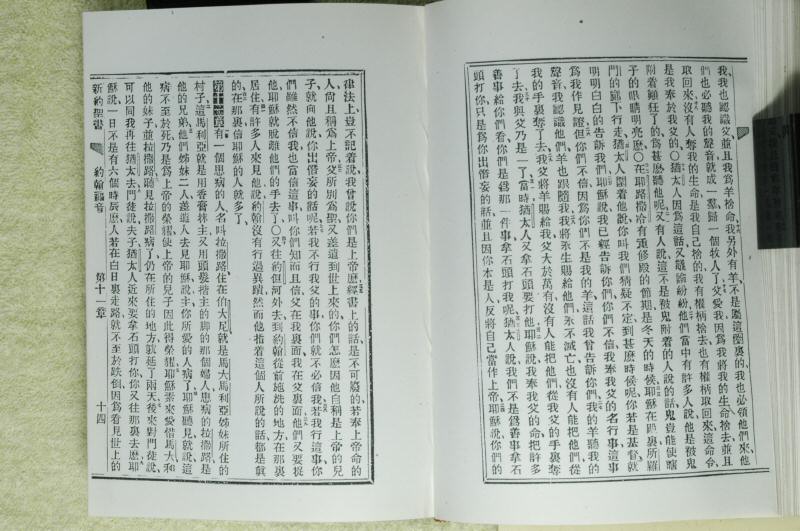 我我也認識父並且我爲羊捨命我另外有羊不是屬這圈裏的我也必領他們來他
們也必聽我的聲音就成一羣歸一個牧人了父愛我因爲我將我的生命捨去並且
取回來沒有人奪我的生命是我自己捨的我有權柄捨去也有權柄取回來這命令
是我奉於我父的〇猶太人因爲這話又議論紛紛他們當中有許多人說他是被鬼
附着癲狂了的爲甚麽聽他呢又有人說這不是被鬼附着的人說的話鬼豈能使瞎
子的眼睛明亮麽〇在耶路撒冷有重修殿的節期是冬天的時候耶穌在殿裏所羅
門的廊下行走猶太人圍着他說你叫我們猜疑不定到甚麽時候呢你若是基督就
明明白白的告訴我們耶穌說我已經告訴你們你們不信我奉我父的名行事這事
爲我作見證但你們不信因爲你們不是我的羊這話我曾告訴你們我的羊聽我的
聲音我認識他們羊也跟隨我我將永生賜給他們永不滅亡也沒有人能把他們從
我的手裏奪了去我父將羊賜給我父大於萬有沒有人能把他們從我父的手裏奪
了去我與父乃是一了當時猶太人又拿石頭要打他耶穌說我奉我父的命把許多
善事給你們看你們是爲那一件事拿石頭打我呢猶太人說我們不是爲善事拿石
頭打你只是爲你出僭妄的話並且因你本是人反將自己當作上帝耶穌說你們的
律法上豈不記着說我曾說你們是上帝麽經書上的話是不可廢的若奉上帝命的
人尚且稱爲上帝父所別爲聖又差遣到世上來的你們怎麽因他自稱是上帝的兒
子就向他說你出僭妄的話呢若我不行我父的事你們就不必信我若我行這事你
們雖然不信我也當信這事叫你們知而且信父在我裏面我在父裏面他們又要捉
他耶穌就脫離他們的手去了〇又往約但河外去到約翰從前施洗的地方在那裏
居住有許多人來見他說約翰沒有行過異蹟然而他指着這個人所說的話都是眞
的在那裏信耶穌的人就多了
有一個患病的人名叫拉撒路住在伯大尼就是馬大馬利亞姊妹所住的
村子這馬利亞就是用香膏抹主又用頭髮擦主的脚的那個婦人患病的拉撒路是
他的兄弟他們姊妹二人差遣人去見耶穌說主你所愛的人病了耶穌聽見就說這
病不至於死乃是爲上帝的榮耀使上帝的兒子因此得榮耀耶穌素來愛惜馬大和
他的妹子並拉撒路聽見拉撒路病了仍在所住的地方就延了兩天後來對門徒說
可以同我再往猶太去門徒說夫子猶太人近來要拿石頭打你你又往那裏去麽耶
穌說一日不是有六個時辰麽人若在白日裏走路就不至於跌倒因爲看見世上的
新約聖書 約翰福音 第十一章 十四